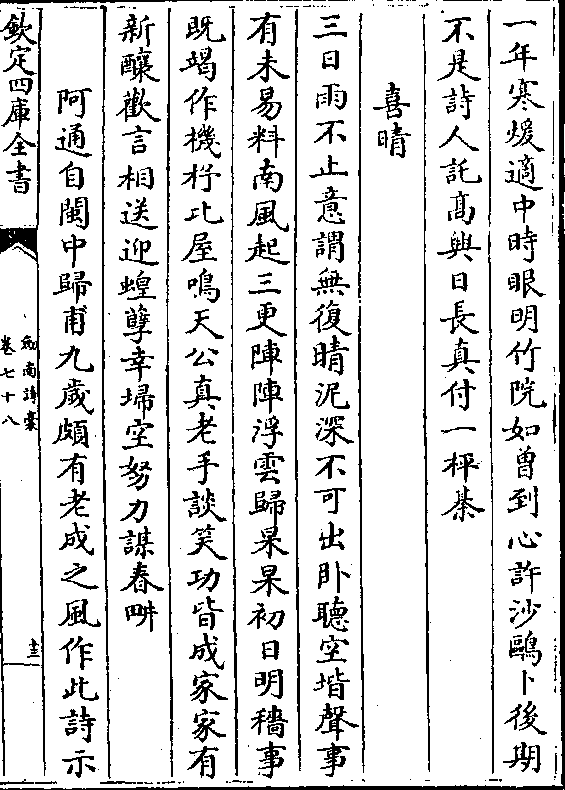 一年寒煖適中時眼明竹院如曾到心許沙鷗卜後期
不是詩人託髙興日長真付一枰棊
喜晴
三日雨不止意謂無復晴泥深不可出卧聽空堦聲事
有未易料南風起三更陣陣浮雲歸杲杲初日明穡事
既竭作機杼比屋鳴天公真老手談笑功皆成家家有
新釀歡言相送迎蝗孽幸埽空努力謀春畊
阿通自閩中歸甫九歲頗有老成之風作此詩示
欽定四庫全書
劒南詩稾
卷七十八
十三